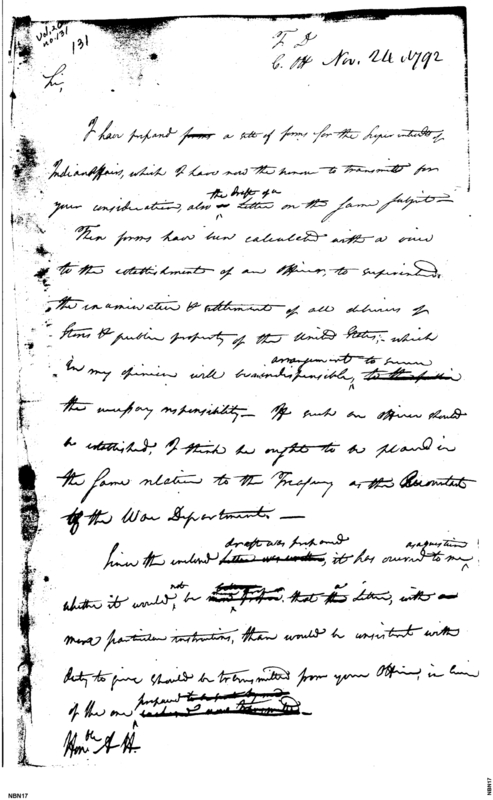 Vol. 20
no. 131
131
T D
C. Off Nov. 24 1792
Sir,
I have prepared forms a sett of forms for the Superintendts of
Indian Affairs, which I have now the honor to transmit for
the draft of a
your consideration, also a Letter on the same subject—
These forms have been calculated with a view
to the establishment of an Officer, to superintend
the examination & settlement of all deliveries of
Stores & public property of the United States; which
arrangement to secure
in my opinion will be indispensible, to the
the necessary responsibility— If such an officer should
be established, I think he ought to be placed in
the same relation to the Treasury as the Accountant
of the War Department. —
draft was prepared as a question
Since the enclosed Letter was written, it has occured to me
not
whether it would, be more proper that the a Letter, with
more particular instructions, than would be consistent with
duty to give should be transmitted from your Office, in lieu
prepared to be sent by me
of the one enclosed was transmitted—
Honble A H.
NBN17
NBN17